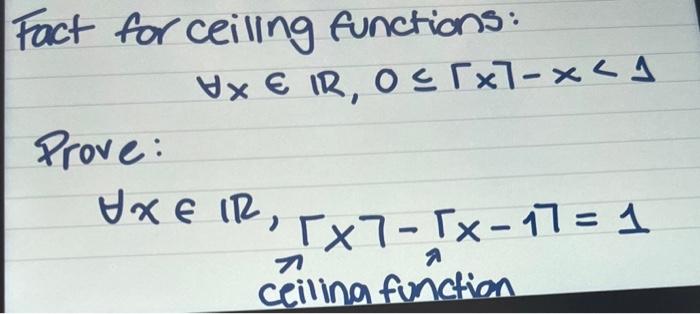 Fact for ceiling functions:
∀x ∈ ℝ, 0 ≤ ⌈x⌉ - x < 1
Prove:
∀x ∈ ℝ, ⌈x⌉ - ⌈x - 1⌉ = 1
ceiling function